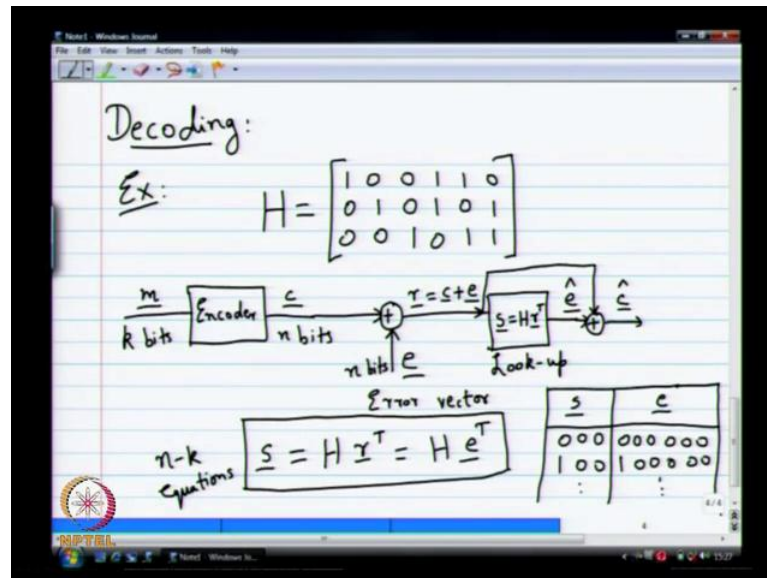 Note1 - Windows Journal
File Edit View Insert Actions Tools Help
Decoding:
Ex:
H = [1 0 0 1 1 0
0 1 0 1 0 1
0 0 1 0 1 1]
m
k bits
Encoder
c
n bits
+
r = c + e
n bits e
Error vector
s = H r^T
Look-up
ê
+
ĉ
n-k equations
s = H r^T = H e^T
s e
000 000 000
100 100000
: :
4/4
4
NPTEL
Note1 - Windows Jo...
15:27